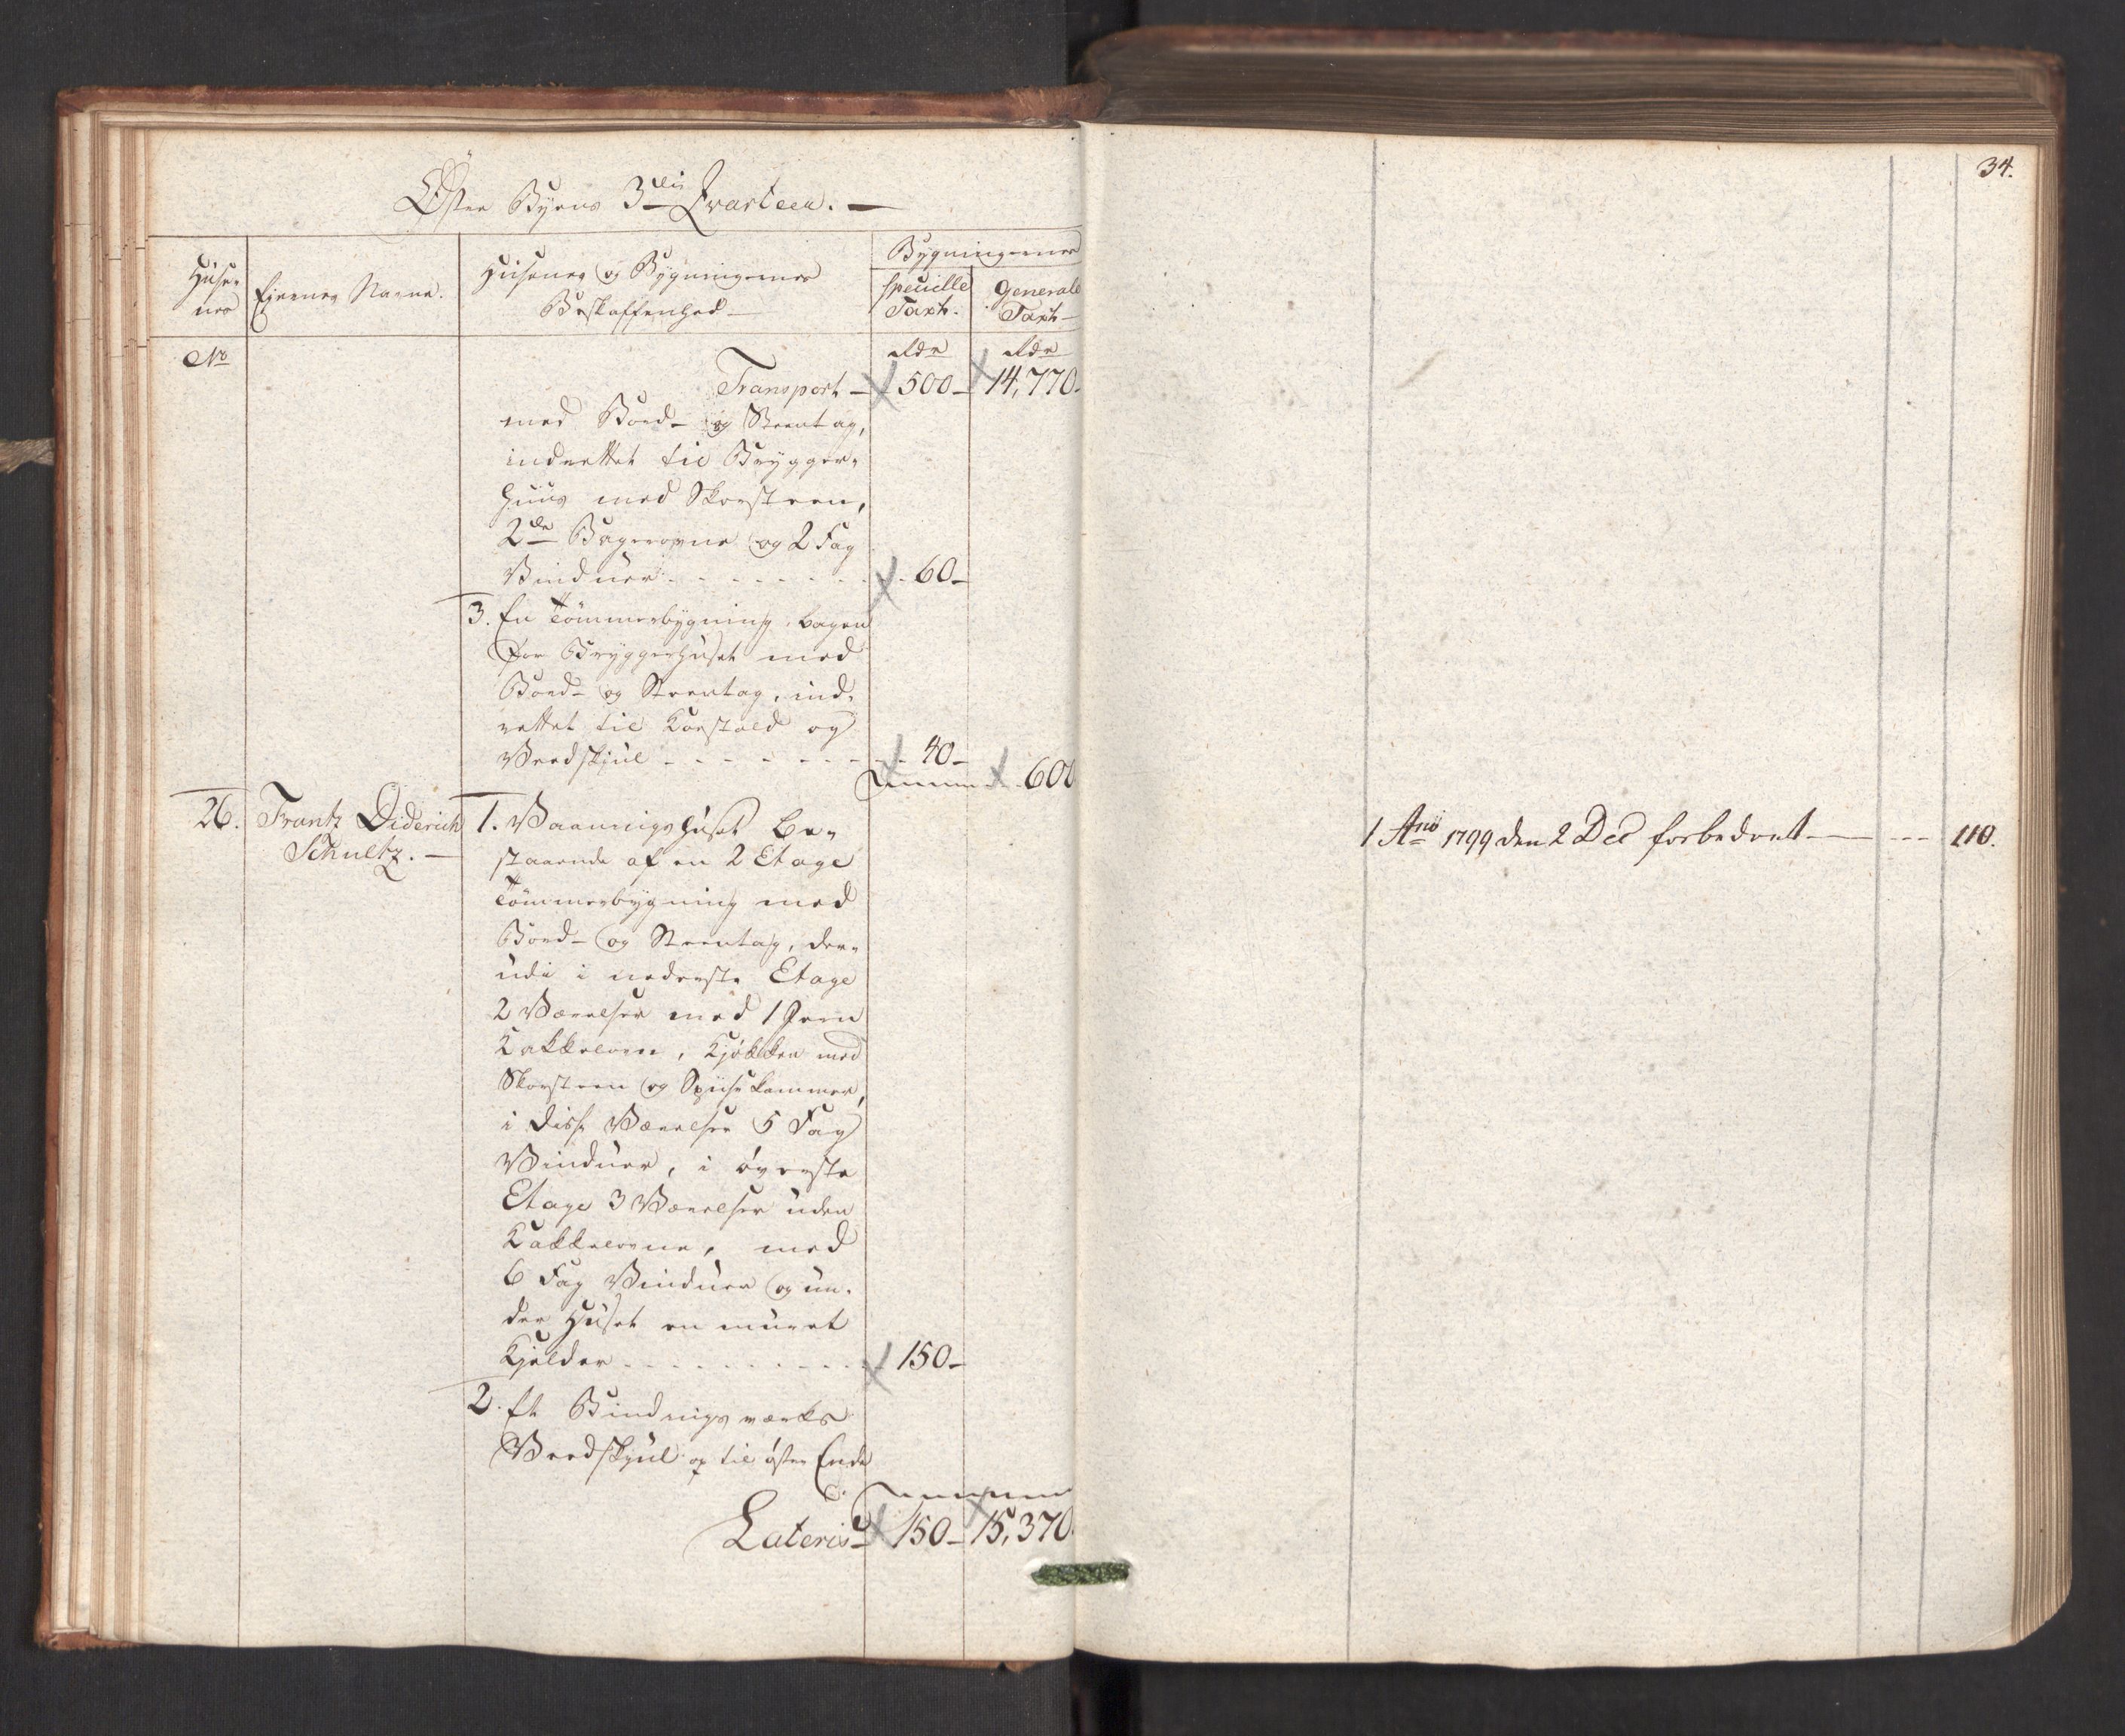 Øster Byens 3die Qvarteer. —
Huse-
nes
Eiernes Navne.
Husenes og Bygningernes
Beskaffenhed —
Bygningernes
specielle
Taxt.
Generale
Taxt —
No
Rdr
Rdr
Transport — 500 — 14,770.
med Bord- og Steentag,
indrettet til Brygger-
huus med Skorsteen,
2de Bagerovne og 2 Fag
Vinduer - - - - - - - 60 —
3. En Tømmerbygning, bagen
for Bryggerhuset med
Bord- og Steentag, ind-
rettet til Koestald og
Vedskjul - - - - - - - 40 —
600
26. Frantz Diderich
Schultz. —
1. Vaaningshuset be-
staaende af en 2 Etage
Tømmerbygning med
Bord- og Steentag, der-
udi i nederste Etage
2 Værelser med 1 Jern
Kakkelovn, Kjøkken med
Skorsteen og Spiisekammer,
i disse Værelser 5 Fag
Vinduer, i øverste
Etage 3 Værelser uden
Kakkelovne, med
6 Fag Vinduer og un-
der Huset en muret
Kjelder - - - - - - - 150 —
2. Et Bindingsværks
Vedskjul op til østre Ende
Lateris 150 — 15,370.
34.
1 Ano 1799 den 2 Dec forbedret — - - - 110.